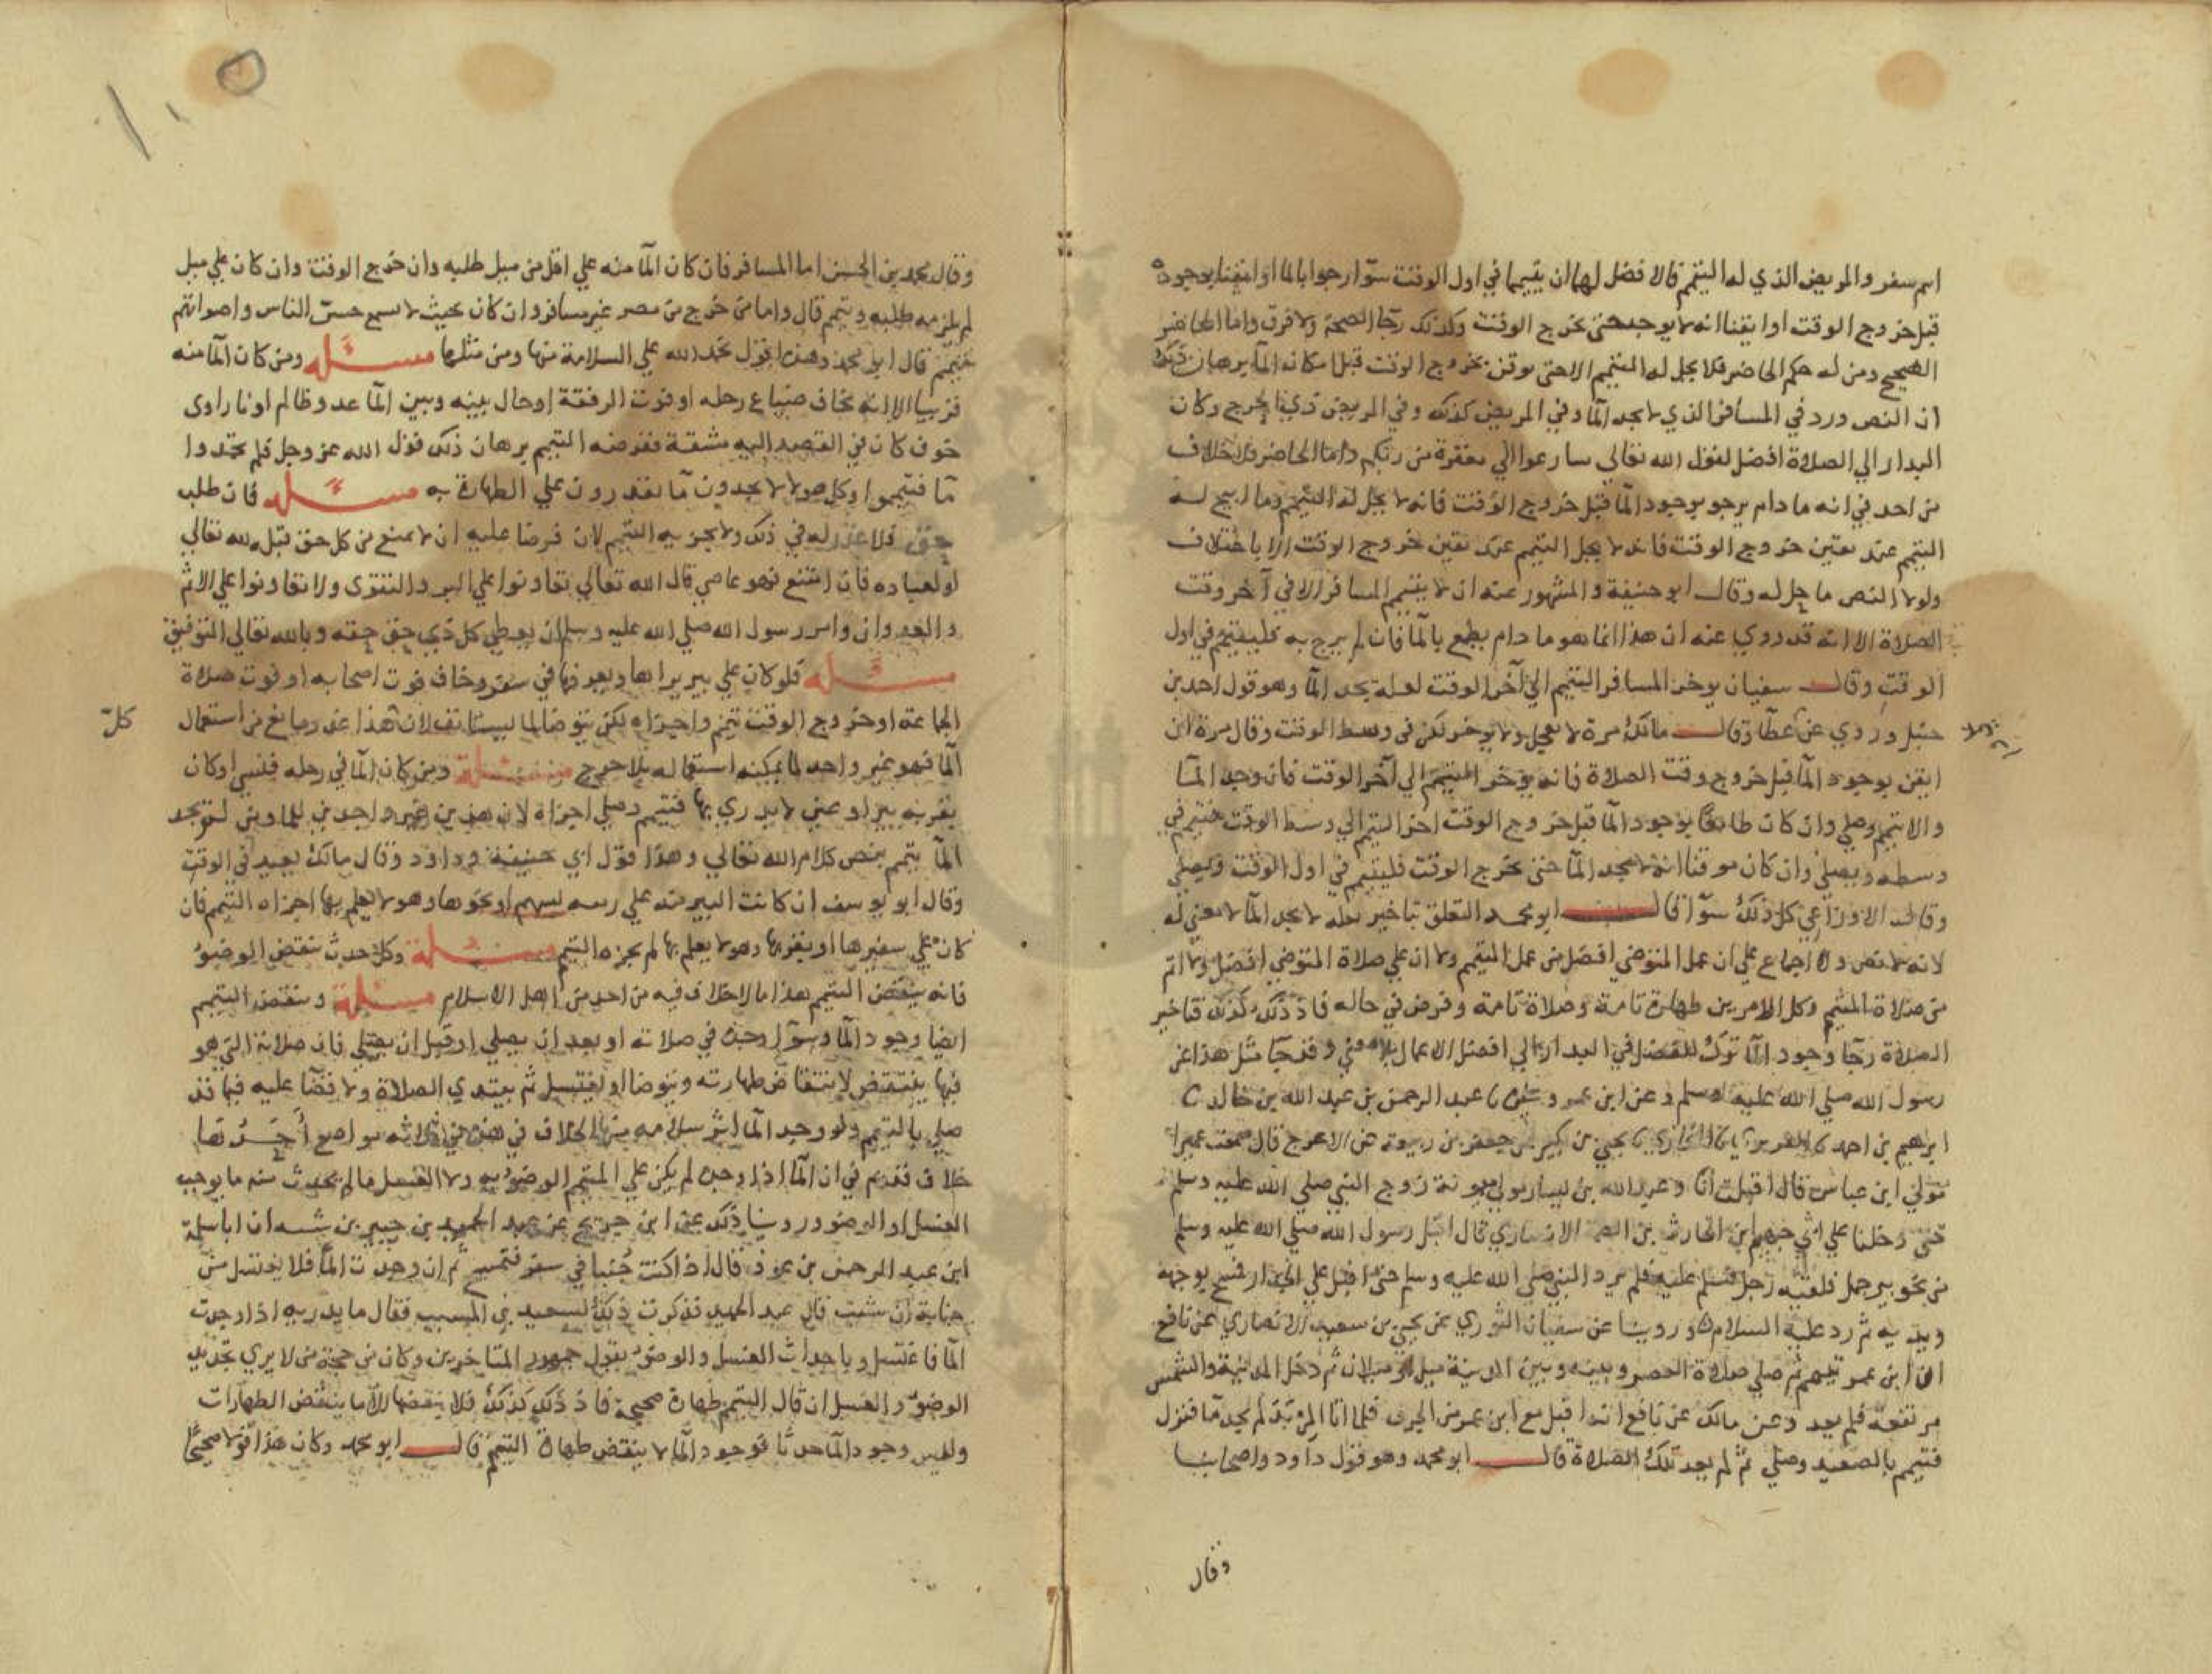 اسم سفر والمريض الذي له التيمم فالافضل لهما ان يتيمما في اول الوقت سوآ رجوا بالما او ايقنا بوجوده
قبل خروج الوقت او ايقنا انه لا يوجد حتى يخرج الوقت وكذلك رجآ الصحة ولا فرق واما الحاضر
الصحيح ومن له حكم الحاضر فلا يحل له التيمم الا حتى يوقن بخروج الوقت قبل امكان المآ برهان ذلك
ان النص ورد في المسافر الذي لا يجد المآ وفي المريض كذلك وفي المريض ذي الحرج وكان
البدار الي الصلاة افضل لقول الله تعالي سارعوا الي مغفرة من ربكم واما الحاضر فلا خلاف
من احد في انه ما دام يرجو بوجود المآ قبل خروج الوقت فانه لا يحل له التيمم وما ابيح لـه
التيمم عند تيقن خروج الوقت فانه لا يحل التيمم عند تيقن خروج الوقت الا باختلاف
ولولا النص ما حل له وقال ابو حنيفة والمشهور عنه ان لا يتيمم المسافر الا في آخر وقت
الصلاة الا انه قد روي عنه ان هذا انما هو ما دام يطمع بالمآ فان لم يرج به فليتيمم في اول
الوقت وقال سفيان يوخر المسافر التيمم الي آخر الوقت لعله يجد المآ وهو قول احمد بن
حنبل وروي عن عطآ وقال مالك مرة لا يعجل ولا يوخر لكن في وسط الوقت وقال مرة ان
ايقن بوجود المآ قبل خروج وقت الصلاة فانه يؤخر التيمم الي آخر الوقت فان وجد المآ
والا تيمم وصلي وان كان طامعًا بوجود المآ قبل خروج الوقت اخر التيمم الي وسط الوقت فتيمم في
وسطه ويصلي وان كان موقنا انه لا يجد المآ حتى يخرج الوقت فليتيمم في اول الوقت ويصلي
وقال الاوزاعي كل ذلك سوآ قال ابو محمد التعلق بتاخير لعله لا يجد المآ لا معني له
لانه لا نص ولا اجماع علي ان عمل المتوضي افضل من عمل المتيمم ولا ان علي صلاة المتوضي افضل ولا اتم
من صلاة المتيمم وكل الامرين طهارة تامة وصلاة تامة وفرض في حاله فاذ ذلك كذلك فتاخير
الصلاة رجآ وجود المآ ترك للفضل في البدار الي افضل الاعمال بلا معني وقد جآ مثل هذا عن
رسول الله صلي الله عليه وسلم وعن ابن عمر وغيره عبد الرحمن بن عبد الله بن خالد
ابرهيم بن احمد الفربري البخاري يحيي بن بكير عن جعفر بن ربيعة عن الاعرج قال سمعت عميرا
مولي ابن عباس قال اقبلت انا وعبد الله بن يسار مولي ميمونة زوج النبي صلي الله عليه وسلم
حتي دخلنا علي ابي جهيم ابن الحارث بن الصمة الانصاري قال اقبل رسول الله صلي الله عليه وسلم
من نحو بير جمل فلقيه رجل فسلم عليه فلم يرد النبي صلي الله عليه وسلم حتى اقبل علي الجدار فمسح بوجهه
ويديه ثم رد عليه السلام وروينا عن سفيان الثوري عن يحيي بن سعيد الانصاري عن نافع
ان ابن عمر تيمم ثم صلي صلاة العصر وبينه وبين المدينة ميل او ميلان ثم دخل المدينة والشمس
مرتفعة فلم يعد وعن مالك عن نافع انه اقبل مع ابن عمر من الجرف فلما اتا المربد لم يجد مآ فنزل
فتيمم بالصعيد وصلي ثم لم يعد تلك الصلاة قال ابو محمد وهو قول داود واصحابنا
وقال
١٠٥
وقال محمد بن الحسن اما المسافر فان كان المآ منه علي اقل من ميل طلبه وان خرج الوقت وان كان علي ميل
لم يلزمه طلبه وتيمم قال واما من خرج من مصر غير مسافر وان كان بحيث لا يسمع حس الناس واصواتهم
فتيمم قال ابو محمد وهذا قول نحمد الله علي السلامة منها ومن مثلها مسئله ومن كان المآ منه
قريبا الا انه يخاف ضياع رحله او فوت الرفقة او حال بينه وبين المآ عدو ظالم او نار او اي
خوف كان في القصد اليه مشقة ففرضه التيمم برهان ذلك قول الله عز وجل فلم تجدوا
مآ فتيمموا وكل هولا لا يجدون مآ يقدرون علي الطهارة به مسئله فان طلب
بحق فلا عذر له في ذلك ولا يجزيه التيمم لان فرضا عليه ان لا يمتنع من كل حق قبله لله تعالي
او لعباده فان امتنع فهو عاصي قال الله تعالي تعاونوا علي البر والتقوى ولا تعاونوا علي الاثم
والعدوان وامر رسول الله صلي الله عليه وسلم ان يعطي كل ذي حق حقه وبالله تعالي التوفيق
مسئله فلو كان علي بير يراها ويعرفها في سفر وخاف فوت اصحابه او فوت صلاة
الجماعة او خروج الوقت تيمم واجزاه لكن يتوضا لما يستانف لان هذا عذر مانع من استعمال كل
المآ فهو غير واجد لما يمكنه استعماله بلا حرج مسئلة ومن كان المآ في رحله فنسيه او كان
بقربه بير او عين لا يدري بها فتيمم وصلي اجزاه لان هذين غير واجدين للمآ ومن لم يجد
المآ يتيمم بنص كلام الله تعالي وهذا قول ابي حنيفة وداود وقال مالك يعيد في الوقت
وقال ابو يوسف ان كانت البير منه علي رمية بسهم او نحوها وهو لا يعلم بها اجزاه التيمم فان
كان علي شفيرها او بقربها وهو لا يعلم بها لم يجزه التيمم مسئلة وكل حدث ينقض الوضوء
فانه ينقض التيمم هذا ما لا خلاف فيه من احد من اهل الاسلام مسئلة وينقض التيمم
ايضا وجود المآ وسوآ وجده في صلاته او بعد ان يصلي او قبل ان يصلي فان صلاته التي هو
فيها ينتقض لانتقاض طهارته ويتوضا او يغتسل ثم يبتدي الصلاة ولا قضآ عليه فيما قد
صلي بالتيمم ولو وجد المآ اثر سلامه منها الخلاف في هذا في ثلاثة مواضع احدها
خلاف قديم في ان المآ اذا وجده لم يكن علي المتيمم الوضوء به ولا الغسل ما لم يحدث منه ما يوجب
الغسل او الوضو وروينا ذلك عن ابن جريج عن عبد الحميد بن جبير بن شيبة ان ابا سلمة
ابن عبد الرحمن بن عوف قال اذا كنت جُنبا في سفر فتمسح ثم ان وجدت المآ فلا يغتسل من
جنابة ان شئت قال عبد الحميد فذكرت ذلك لسعيد بن المسيب فقال ما يدريه اذا وجدت
المآ فاغتسل وبايجاب الغسل والوضوء يقول جمهور المتاخرين وكان من حجة من لا يري تجديد
الوضوء والغسل ان قال التيمم طهارة صحيحة فاذ ذلك كذلك فلا ينقضها الا ما ينقض الطهارات
وليس وجود المآ حدثًا فوجود المآ لا ينقض طهارة التيمم قال ابو محمد وكان هذا قولا صحيحًا